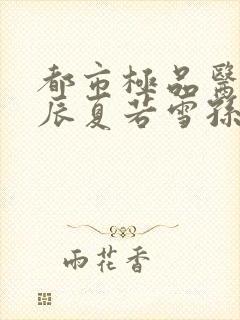 都市極品醫
辰夏若雪孫
雨花香